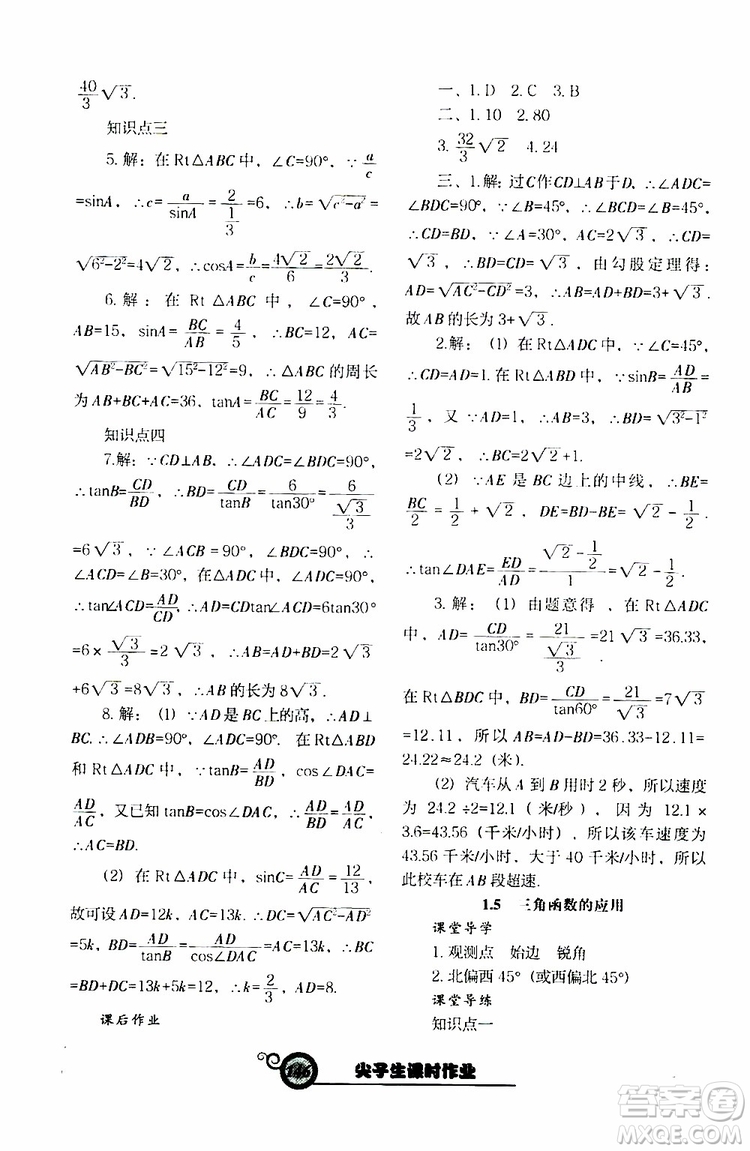 40/3 √3.
知识点三
5. 解：在 Rt△ABC 中，∠C=90°，∵ a/c
=sinA，∴c= a/sinA = 2/(1/3) =6，∴b=√(c²-a²) =
√(6²-2²)=4√2，∴cosA= b/c = 4√2/6 = 2√2/3.
6. 解：在 Rt△ABC 中，∠C=90°，
AB=15，sinA= BC/AB = 4/5，∴BC=12，AC=
√(AB²-BC²)=√(15²-12²)=9，∴△ABC 的周长
为 AB+BC+AC=36，tanA= BC/AC = 12/9 = 4/3.
知识点四
7. 解：∵CD⊥AB，∴∠BDC=90°，
∴tanB= CD/BD，∴BD= CD/tanB = 6/tan30° = 6/(√3/3)
=6√3，∵∠ACB=90°，∠BDC=90°，∴
∠ACD=∠B=30°，在△ADC 中，∠ADC=90°，
∴tan∠ACD= AD/CD，∴AD=CDtan∠ACD=6tan30°
=6× √3/3 =2√3，∴AB=AD+BD=2√3
+6√3=8√3，∴AB 的长为 8√3.
8. 解：(1) ∵AD 是 BC 上的高，∴AD⊥
BC. ∴∠ADB=90°，∠ADC=90°. 在 Rt△ABD
和 Rt△ADC 中，∵tanB= AD/BD，cos∠DAC=
AD/AC，又已知 tanB=cos∠DAC，∴ AD/BD = AD/AC，∴
AC=BD.
(2) 在 Rt△ADC 中，sinC= AD/AC = 12/13，
故可设 AD=12k，AC=13k. ∴CD=√(AC²-AD²)
=5k，BD= AD/tanB = AD/cos∠DAC =AC=13k，∴BC
=BD+DC=13k+5k=12，∴k= 2/3，∴AD=8.
课后作业
一、1.D 2.C 3.B
二、1.10 2.80
3. 32/3 √2 4.24
三、1.解：过C作CD⊥AB于D，∴∠ADC=
∠BDC=90°，∵∠B=45°，∴∠BCD=∠B=45°，
∴CD=BD，∵∠A=30°，AC=2√3，∴CD=
√3，∴BD=CD=√3，由勾股定理得：
AD=√(AC²-CD²)=3，∴AB=AD+BD=3+√3.
故 AB 的长为 3+√3.
2.解：(1) 在 Rt△ADC 中，∵∠C=45°，
∴CD=AD=1.在 Rt△ABD 中，∵sinB= AD/AB =
1/3，又∵AD=1，∴AB=3，∴BD=√(3²-1²)
=2√2，∴BC=BD+DC=2√2+1.
(2) ∵AE 是 BC 边上的中线，∴BE=
BC/2 = 1/2 +√2，DE=BD-BE=√2 - 1/2，
∴tan∠DAE= ED/AD = (√2 - 1/2)/1 =√2 - 1/2.
3.解：(1) 由题意得，在 Rt△ADC
中，AD= CD/tan30° = 21/(√3/3) =21√3=36.33，
在 Rt△BDC 中，BD= CD/tan60° = 21/√3 =7√3
=12.11，所以 AB=AD-BD=36.33-12.11=
24.22≈24.2（米）.
(2) 汽车从 A 到 B 用时 2 秒，所以速度
为 24.2÷2=12.1（米/秒），因为 12.1×
3.6=43.56（千米/小时），所以该车速度为
43.56 千米/小时，大于 40 千米/小时，所以
此校车在 AB 段超速.
1.5 三角函数的应用
课堂导学
1. 观测点 始边 锐角
2. 北偏西 45°（或西偏北 45°）
课堂导练
知识点一
146 尖子生课时作业
答案圈
MXQE.COM